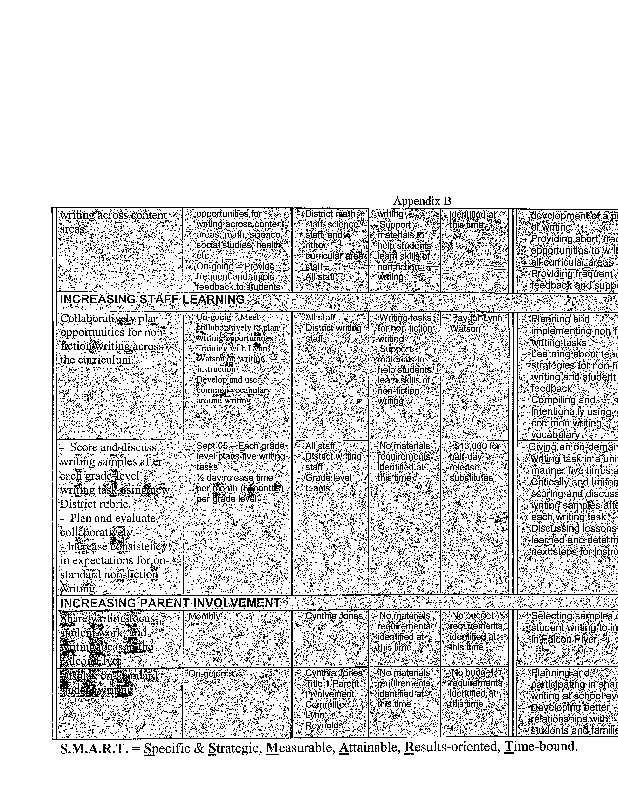 Appendix B
writing across content
areas.
opportunities for
writing across content
areas, math, science,
social studies, health,
etc.
On-going – Provide
frequent and ample
feedback to students
District math
staff, science
staff, and
other
curricular area
staff
All staff
writing
Support
materials to
help students
learn skills of
non-fiction
writing
identified at
this time
development of a
of writing
Providing short, frequent
opportunities to
all curricular areas
Providing frequent
feedback and
INCREASING STAFF LEARNING
Collaboratively plan
opportunities for non-
fiction writing across
the curriculum.
On-going – Meet
collaboratively to plan
writing opportunities
Watson
writing
instruction
Develop and use
common vocabulary
around writing
All staff
District writing
staff
Writing tasks
for non-fiction
writing
Support
materials to
help students
learn skills of
non-fiction
writing
Lynn
Watson
Planning and
implementing non
writing tasks
Learning about
strategies for
writing and student
feedback
Compiling and
intentionally using
common writing
vocabulary
– Score and discuss
writing samples after
each grade level
writing task using new
District rubric.
– Plan and evaluate
collaboratively.
– Increase consistency
in expectations for on-
standard non-fiction
writing.
Sept 05 – Each grade
level plans five writing
tasks
½ day release time
per month (6 months)
per grade level
All staff
District writing
staff
Grade level
teams
No materials
requirements
identified at
this time
$13,000 for
half-day
release
substitutes
Giving an on-demand
writing task in a
manner five times a
Critically and
scoring and
writing samples
each writing task
Discussing lessons
learned and
next steps for
INCREASING PARENT INVOLVEMENT
Share writing focus,
student work, and
Monthly
Cynthia Jones
No materials
requirements
identified at
this time
No budget
requirements
identified at
this time
Selecting samples
student writing to
in Falcon Flyer
On-going
Cynthia Jones
Title I Parent
Involvement
Committee
No materials
requirements
identified at
this time
No budget
requirements
identified at
this time
Planning and
participating in
writing at school
Developing better
relationships with
students and
S.M.A.R.T. = Specific & Strategic, Measurable, Attainable, Results-oriented, Time-bound.